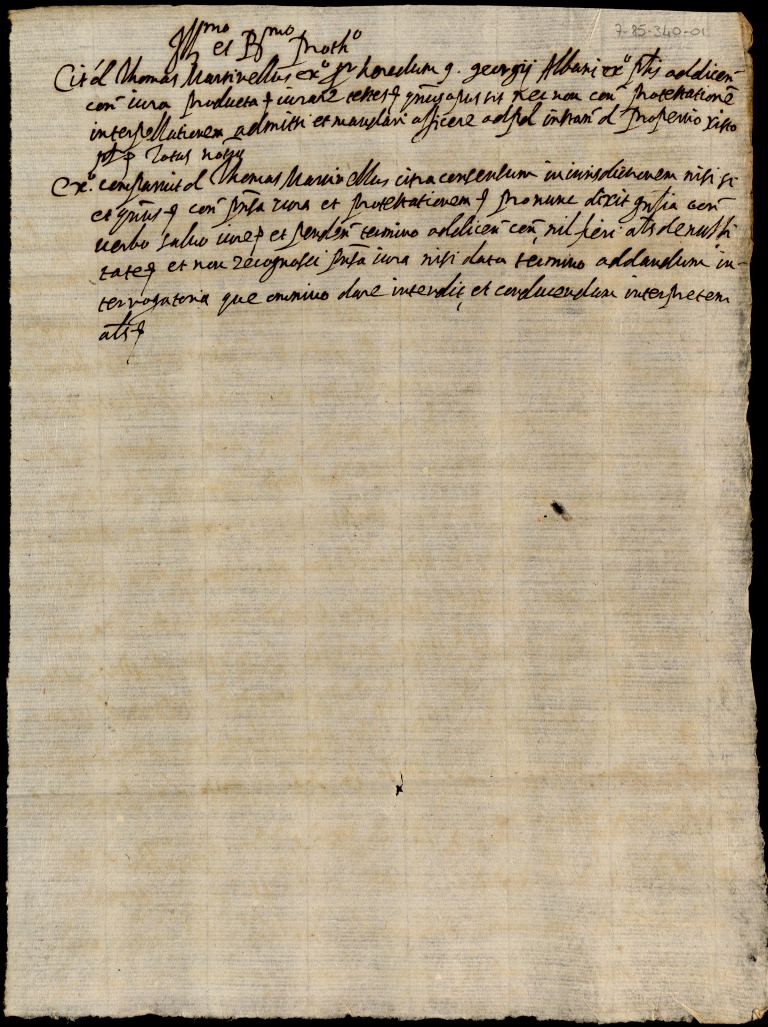 7-85-340-01
Ill^mo et R^mo Proth^o
Cit' d Thomas Martinellus ex^o pr heredum q. georgij Albani ex^o ptis ad dicen
con iura producta iurare testes quus opus sit nec non con protestatione
interpellationem admitti et mandari assistere ad instan d Properio Xisto
Totus notus
Ex^o comparuit d Thomas Martinellus citra consensum in iurisdictionem nisi si
et quus con pnsa iura et protestationem pro nunc dixit
verbo salvo iure et penden termino ad dicen con nil fieri als de nulli
tate et non recognosci pnsa iura nisi dato termino ad dandum in-
terrogatoria que omnino dare intendit et conducendum interpretem
als